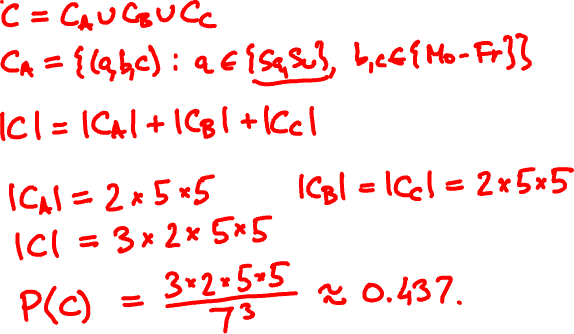 C = C_A ∪ C_B ∪ C_C
C_A = {(a,b,c) : a ∈ {Sa,Su}, b,c ∈ {Mo-Fr}}
|C| = |C_A| + |C_B| + |C_C|
|C_A| = 2 × 5 × 5 |C_B| = |C_C| = 2 × 5 × 5
|C| = 3 × 2 × 5 × 5
P(C) = \frac{3×2×5×5}{7^3} ≈ 0.437.